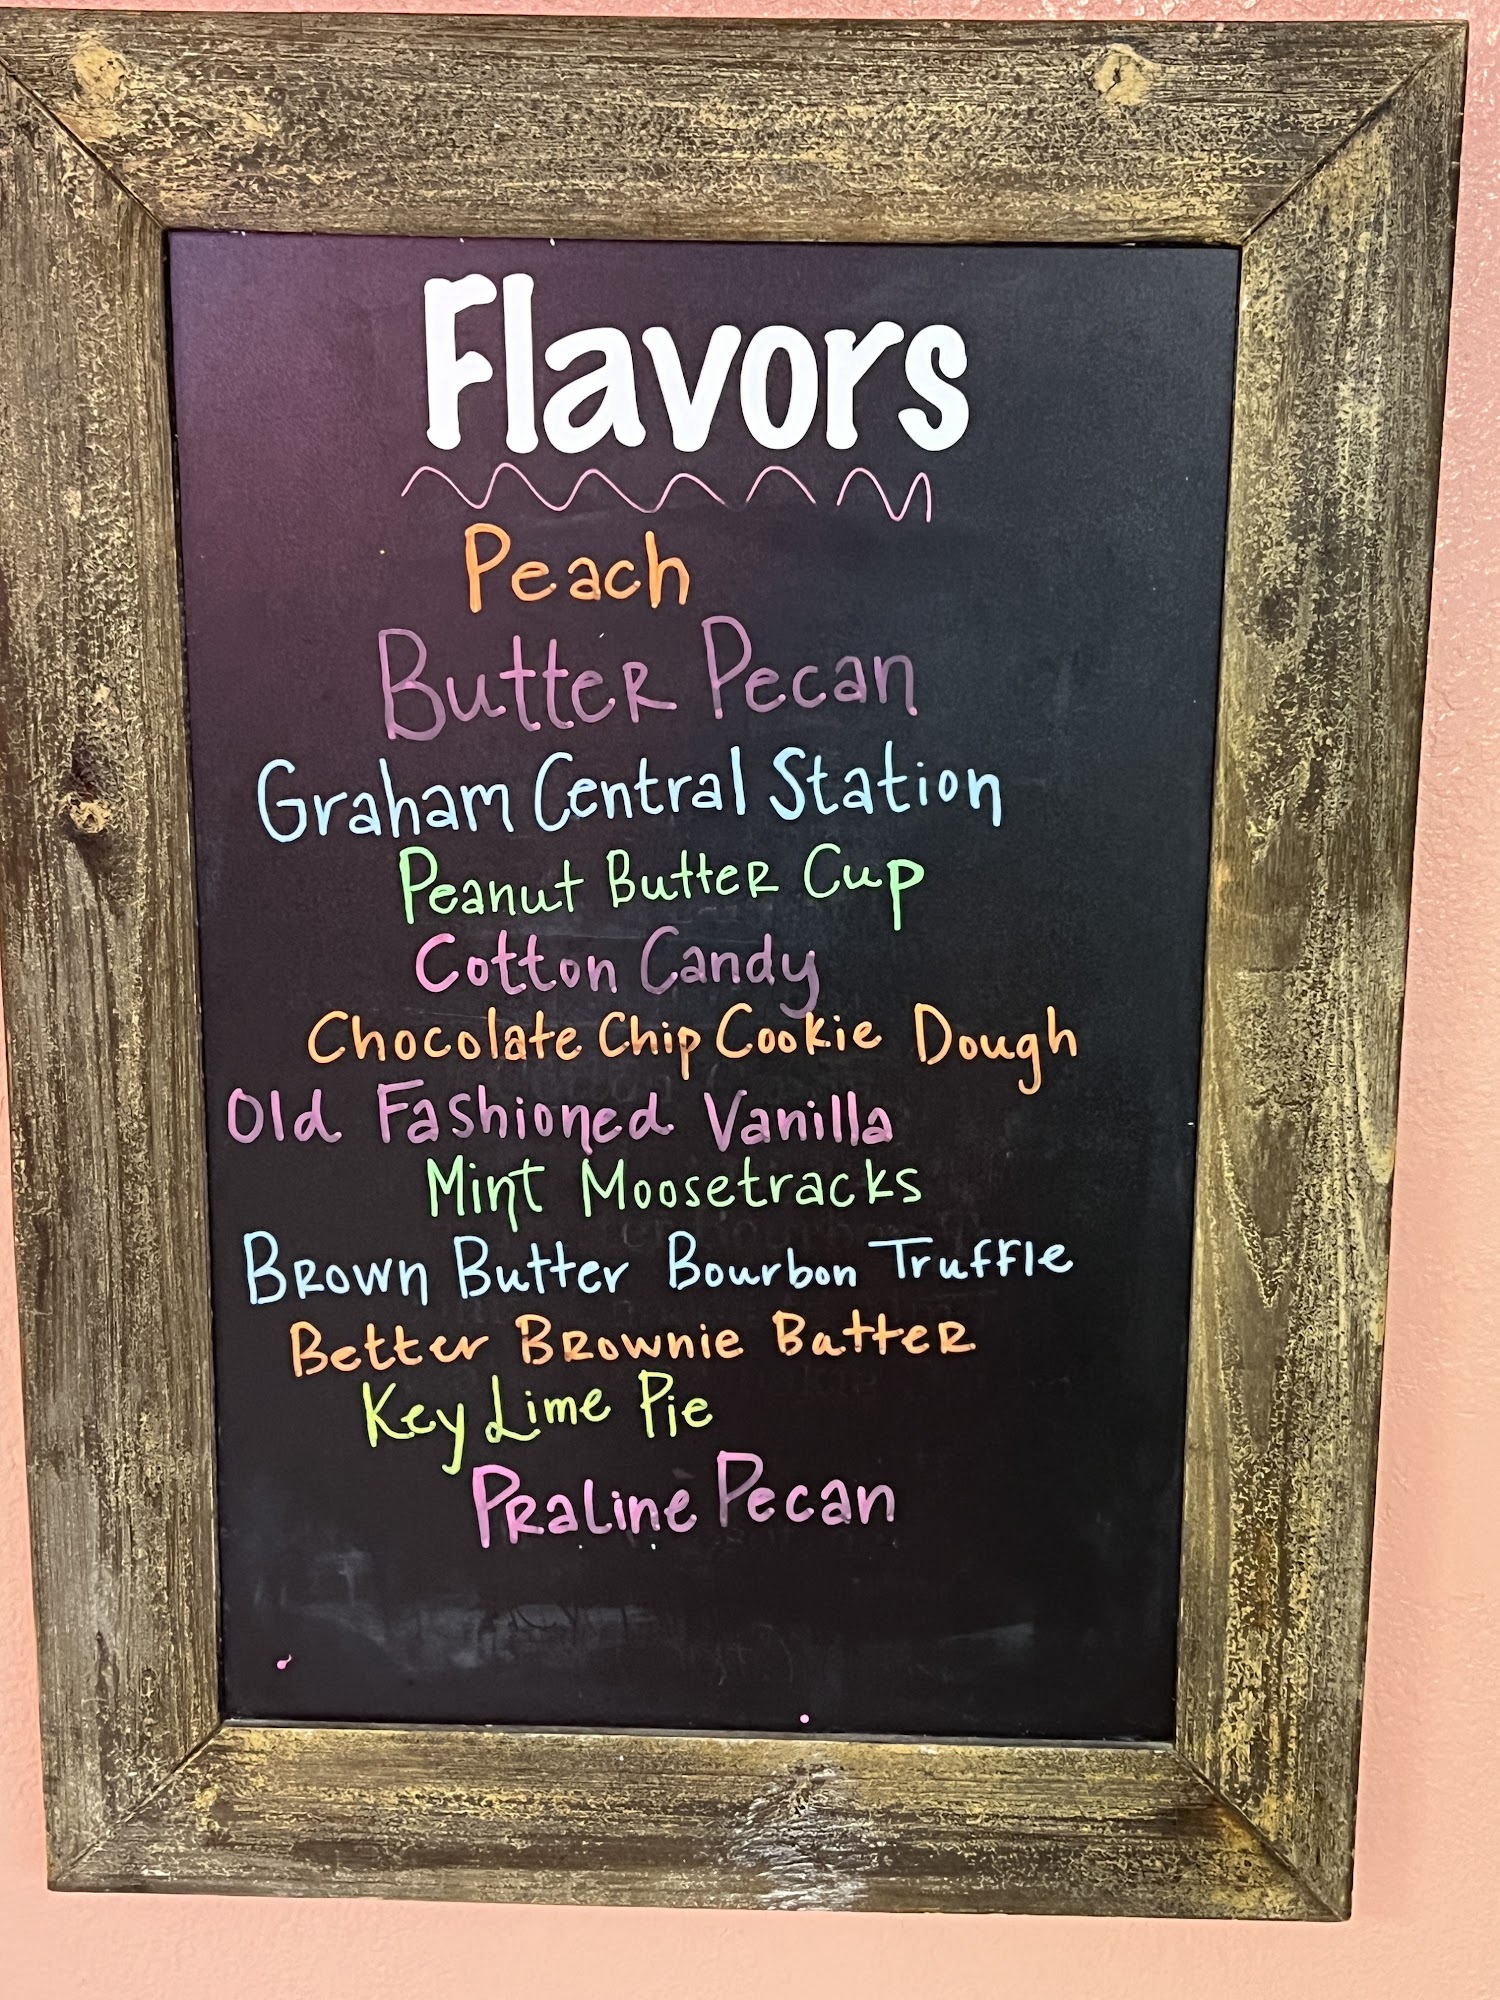 Flavors
Peach
Butter Pecan
Graham Central Station
Peanut Butter Cup
Cotton Candy
Chocolate Chip Cookie Dough
Old Fashioned Vanilla
Mint Moosetracks
Brown Butter Bourbon Truffle
Better Brownie Batter
Key Lime Pie
Praline Pecan